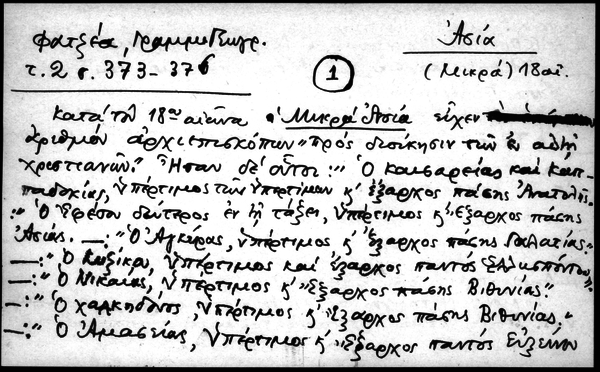 Φατζέα, Γραμμ. Γεωγρ.
τ. 2 σ. 373-376
1
Ἀσία
(Μικρά) 18 αἰ.
Κατά τόν 18ον αἰῶνα ἡ Μικρά Ἀσία εἶχεν
ἀριθμόν ἀρχιεπισκόπων "πρός διοίκησιν τῶν ἐν αὐτῇ
χριστιανῶν." Ἦσαν δέ οὗτοι: "Ὁ Καισαρείας καί Καπ-
παδοκίας, ὑπέρτιμος τῶν ὑπερτίμων κ' ἔξαρχος πάσης Ἀνατολῆς.
:"Ὁ Ἐφέσου δεύτερος ἐν τῇ τάξει, ὑπέρτιμος κ' Ἔξαρχος πάσης
Ἀσίας. —:"Ὁ Ἀγκύρας, ὑπέρτιμος κ' ἔξαρχος πάσης Γαλατίας."
—:"Ὁ Κυζίκου, ὑπέρτιμος καί ἔξαρχος παντός Ἑλλησπόντου"
—:"Ὁ Νικαίας, ὑπέρτιμος κ' Ἔξαρχος πάσης Βιθυνίας."
—:"Ὁ Χαλκηδόνος, ὑπέρτιμος κ' Ἔξαρχος πάσης Βιθυνίας."
—:"Ὁ Ἀμασείας, ὑπέρτιμος κ' Ἔξαρχος παντός Εὐξείνου